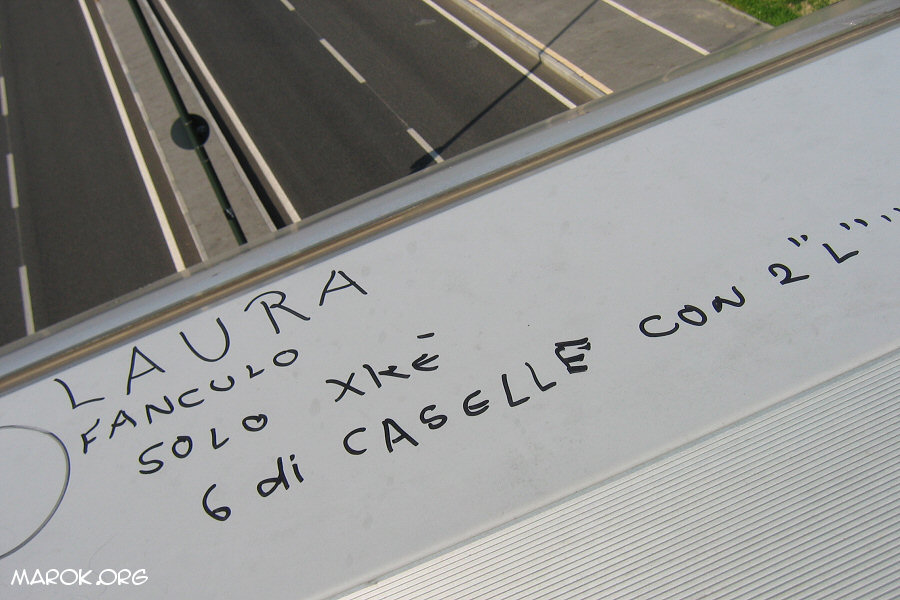 LAURA
FANCULO
SOLO XKĒ
6 di CASELLE CON 2 "L"....
MAROK.ORG